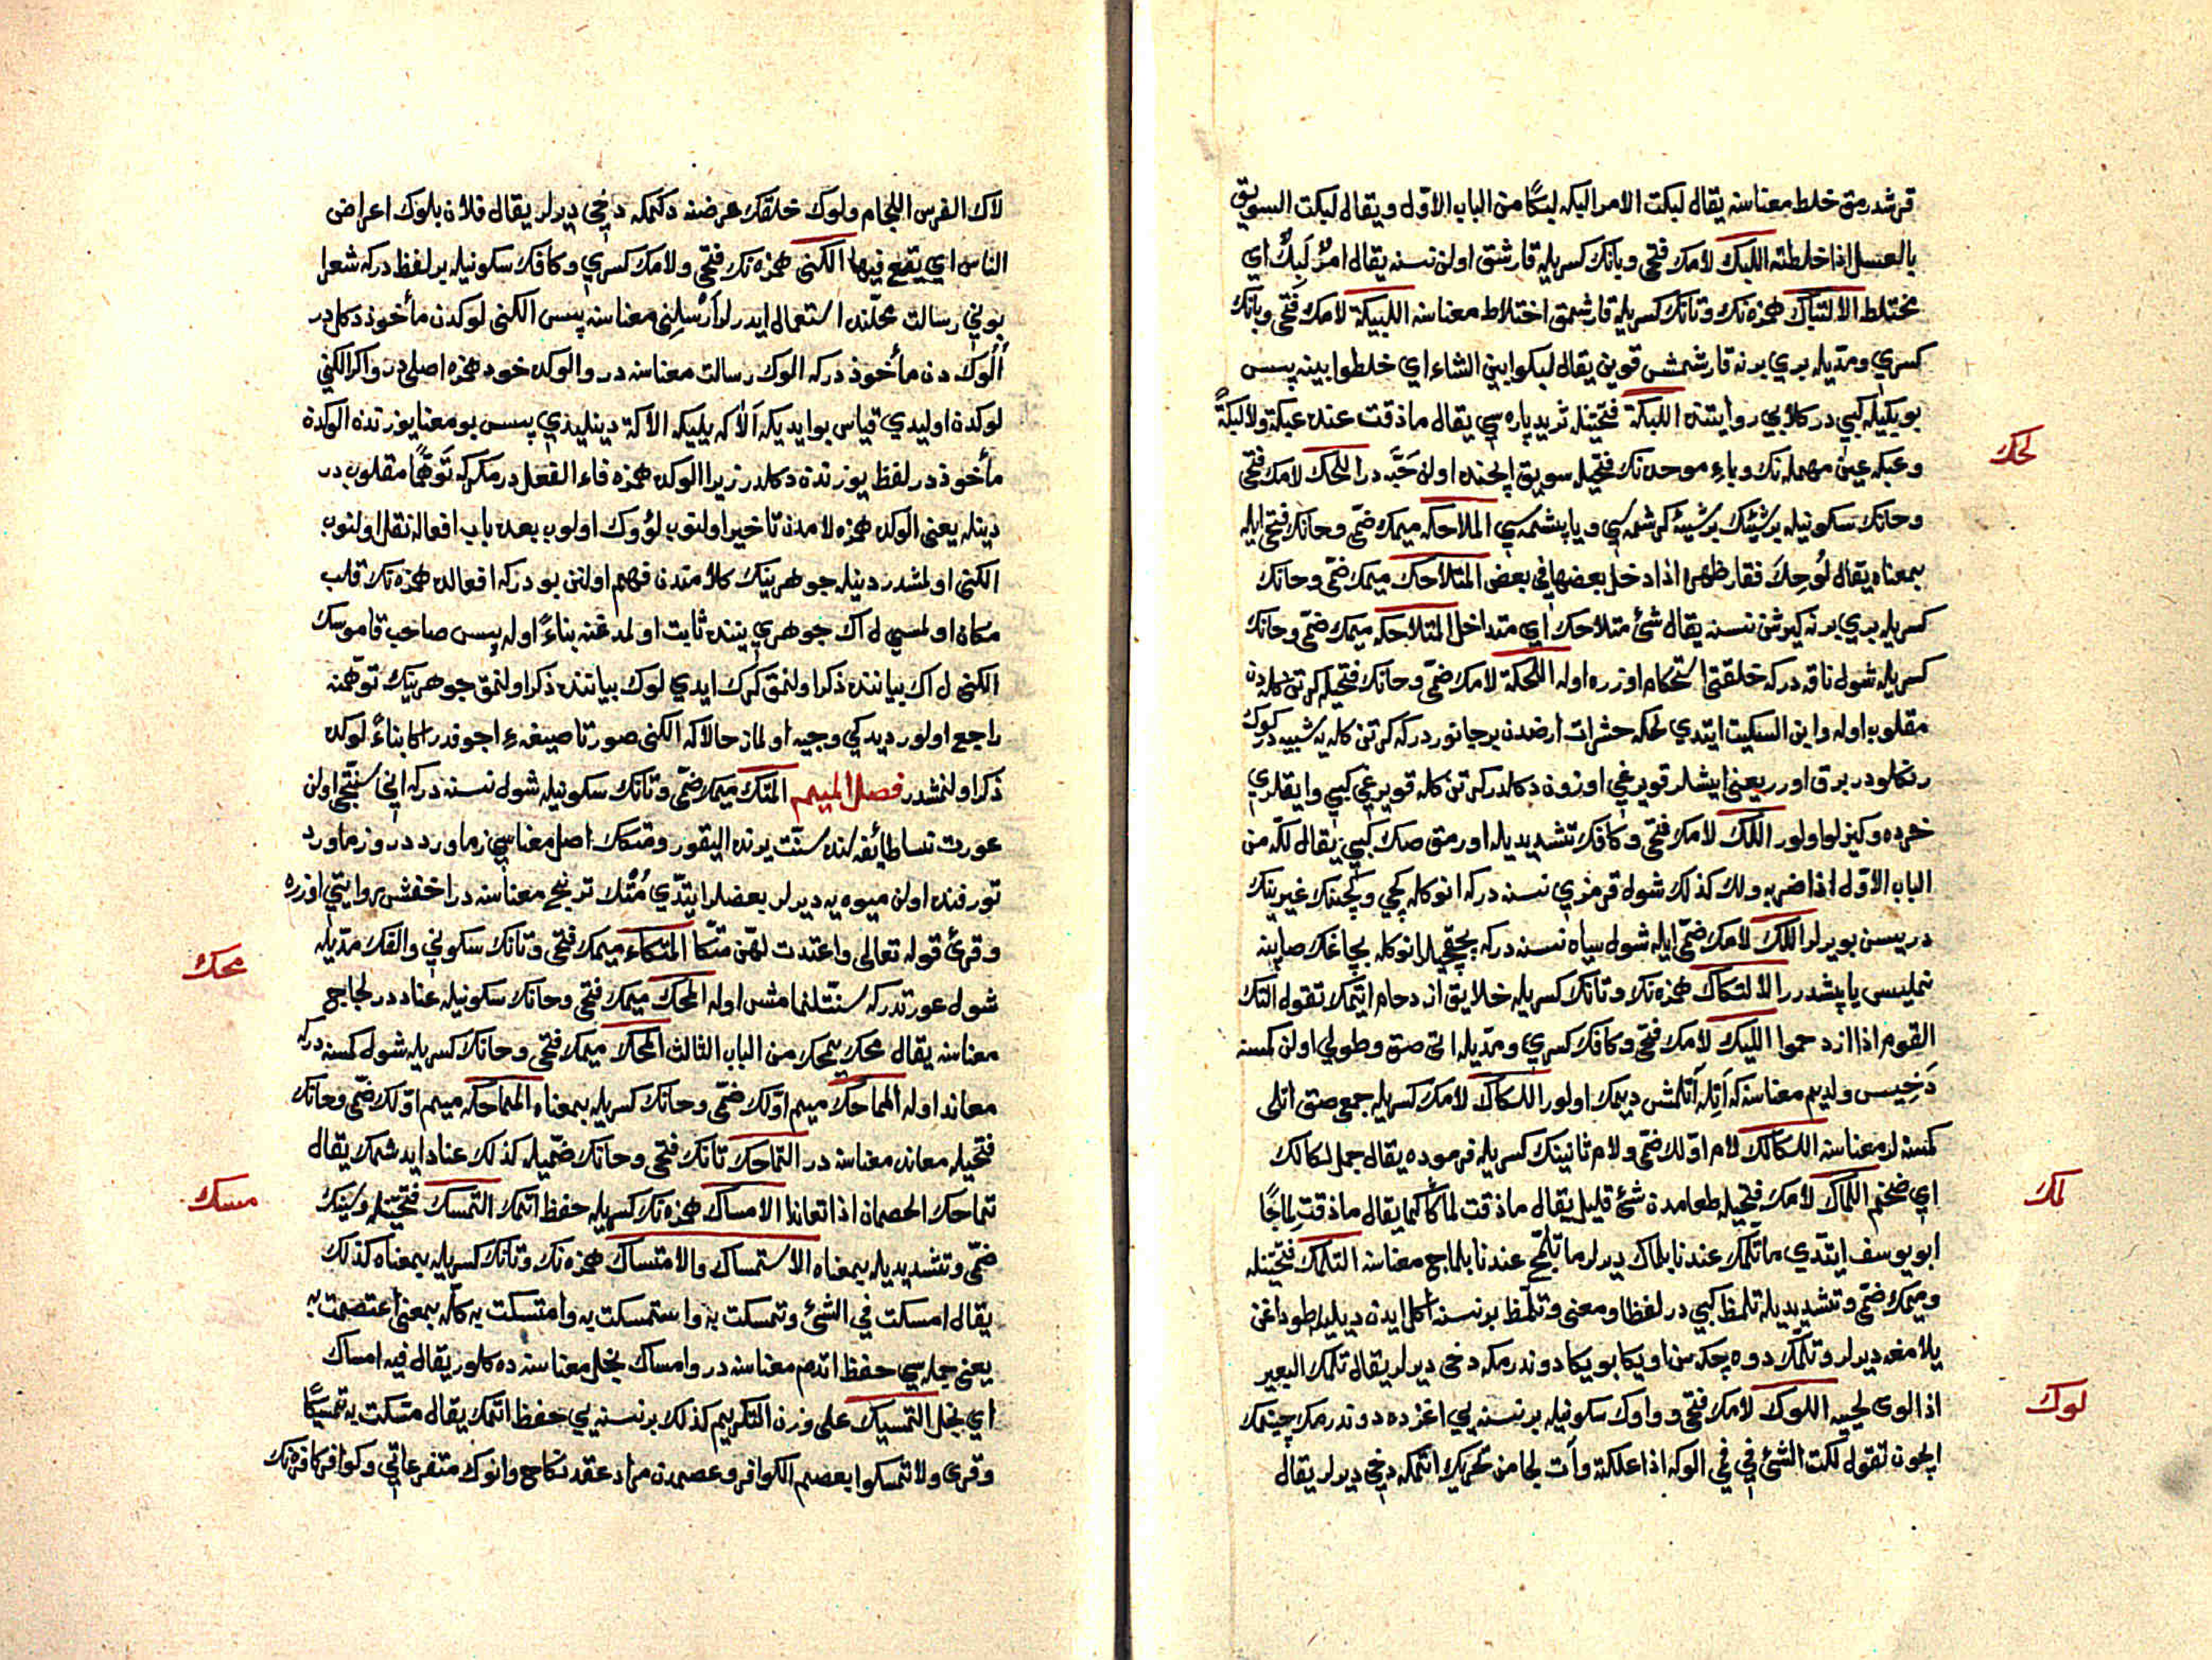 قرشدرمق خلط معناسنه يقال لبكت الامر البكه لبكًا من الباب الاوّل ويقال لبكت السويق
بالعسل اذا خلطته اللبك لامك فتحى وبانك كسريله قارشق اولن نسنه يقال امرٌ لَبِكٌ اى
مختلط الالتباك همزه نك وتانك كسريله قارشمق اختلاط معناسنه اللبيكة لامك فتحى وبانك
كسرى ومدّيله برى برنه قارشمش قوين يقال لبكوا بين الشاء اى خلطوا بينه پس
بو بكيله كبى در كلابى روايتنده اللبكة فتحتينله ثريد پاره سى يقال ماذقت عنده عبكة ولا لبكةً
لحك
وعبكه عين مهمله نك وباء موحده نك فتحيله سويق ايچنده اولن حَبّه در اللحك لامك فتحى
وحانك سكونيله برشيئك برشيئه كرشمه سى ويا پشمه سى الملاحكه ميمك ضمّى وحانك فتحى ايله
بمعناه يقال لُوحِكَ فقار ظهره اذا دخل بعضها فى بعض المتلاحك ميمك ضمّى وحانك
كسريله برى برنه كيرشن نسنه يقال شئ متلاحك اى متداخل المتلاحكه ميمك ضمّى وحانك
كسريله شول ناقه دركه خلقتى استحكام اوزره اوله اللحكة لامك ضمّى وحانك فتحيله كرتن كله دن
مقلوب اوله وابن السكيت ايتدى لحكه حشرات ارضدن برجانور دركه كرتن كله يه شبيه در كوك
رنكلودر برق اورر يعنى ايشلر قويرغى اوزون دكلدر كرتن كله قويرغى كبى وايقلرى
خرده وكيزلو اولور اللك لامك فتحى وكافك تشديديله اورمق صك كبى يقال لكّه من
الباب الاوّل اذا ضربه ولك كذلك شول قرمزى نسنه دركه انوكله كچى وكچينك غيرينك
دريسن بويرلر اللك لامك ضمّى ايله شول سياه نسنه دركه بچقجيلر انوكله بچاغك صاپنه
تمليسى ياپشدرر الالتكاك همزه نك وتانك كسريله خلايق ازدحام ايتمك تقول التك
القوم اذا ازدحموا اللكيك لامك فتحى وكافك كسرى ومدّيله اتى صق وطولى اولن كمسنه
دَخِيس ولديم معناسنه كه اَتِلَه اَتلمش ديمك اولور اللكاك لامك كسريله جمع صق اتلى
كمسنه لر معناسنه اللكالك لام اوّلك ضمّى ولام ثانينك كسريله فرموده يقال جمل لكالك
لمك
اى ضخم اللماك لامك فتحيله طعامدن شئ قليل يقال ماذقت لماكًا كما يقال ماذقت لماجًا
ابو يوسف ايتدى ماتلمّك عندنا بلماك ديرلر ماتلمّج عندنا بلماج معناسنه التلمك فتحتينله
وميمك ضمّى وتشديديله تلمظ كبى در لفظا ومعنى وتلمّظ برنسنه اكل ايدن ديليله طوداغن
يلامغه ديرلر وتلمّك دوه چكه سن اويكا بويكا دوندرمكه دخى ديرلر يقال تلمك البعير
لوك
اذا لوى لحييه اللوك لامك فتحى وواوك سكونيله برنسنه يى اغزده دوندرمك چينمك
ايچون تقول لكت الشئ فى فى الوكه اذا علكته وآت لجامن تحريك ايتمكه دخى ديرلر يقال
لاك الفرس اللجام ولوك خلقك عرضنه دكمكه دخى ديرلر يقال فلان يلوك اعراض
الناس اى يقع فيها الكنى همزه نك فتحى ولامك كسرى وكافك سكونيله برلفظ دركه شعرا
بونى رسالت محلّنده استعمال ايدرلر اَرْسِلِنى معناسنه پس الكنى لوكدن مأخوذ دكل در
اَلُوك دن مأخوذ دركه الوك رسالت معناسنه در والوكده خود همزه اصلى در واكر الكنى
لوكدن اوليدى قياس بو ايديكه اَلَاكَه يليكه الاكة دينليدى پس بو معنا يوزندن الوكدن
مأخوذ در لفظ يوزندن دكلدر زيرا الوكده همزه فاء الفعل در مكركه تَوَهُّمًا مقلوب در
دينله يعنى الوكده همزه لامدن تأخير اولنوب لؤوك اولوب بعده باب افعاله نقل اولنوب
الكنى اولمشدر دينله جوهرينك كلامندن فهم اولنن بودركه افعالده همزه نك قلب
مكان اولمسى ل اك جوهرى يننده ثابت اولمدغنه بناءً اوله پس صاحب قاموسك
الكنى ل اك بياننده ذكر اولنمق كرك ايدى لوك بياننده ذكر اولنمق جوهرينك توهّمنه
راجع اولور ديدكى وجيه اولماز حالاكه الكنى صورتا صيغهء اجوفدر اكا بناءً لوكده
ذكر اولنمشدر فصل الميم المتك ميمك ضمّى وتانك سكونيله شول نسنه دركه انى سنّتجى اولن
عورت نسا طائفه سنده سنّت يرنده اليقور ومتكك اصل معناسى زماورد در وزماورد
تورفنده اولن ميوه يه ديرلر بعضلر ايتدى مُتْك ترنج معناسنه در اخفش روايتى اوزره
وقرئ قوله تعالى واعتدت لهّن متكًا المتكاء ميمك فتحى وتانك سكونى والفك مدّيله
محك
شول عورتدركه سنّتلنمامش اوله المحك ميمك فتحى وحانك سكونيله عناد در لجاج
معناسنه يقال محك يمحك من الباب الثالث المحك ميمك فتحى وحانك كسريله شول كمسنه دركه
معاند اوله المماحك ميم اوّلك ضمّى وحانك كسريله بمعناه المماحكه ميم اوّلك ضمّى وحانك
فتحيله معانده معناسنه در التماحك تانك فتحى وحانك ضمّيله كذلك عناد ايدشمك يقال
مسك
تماحك الخصمان اذا تعاندا الامساك همزه نك كسريله حفظ اتمك التمسك فتحتينله وسينك
ضمّى وتشديديله بمعناه الاستمساك والامتساك همزه نك وتانك كسريله بمعناه كذلك
يقال امسكت فى الشئ وتمسكت به واستمسكت به وامتسكت به كلّه بمعنى اعتصمت به
يعنى جمله سى حفظ اتدم معناسنه در وامساك بخل معناسنه ده كلور يقال فيه امساك
اى بخل التمسيك على وزن التكريم كذلك برنسنه يى حفظ اتمك يقال مسّكت به تمسيكًا
وقرئ ولا تمسكوا بعصم الكوافر وعصمدن مراد عقد نكاح وانوك متفرعاتى وكوافر كافره نك